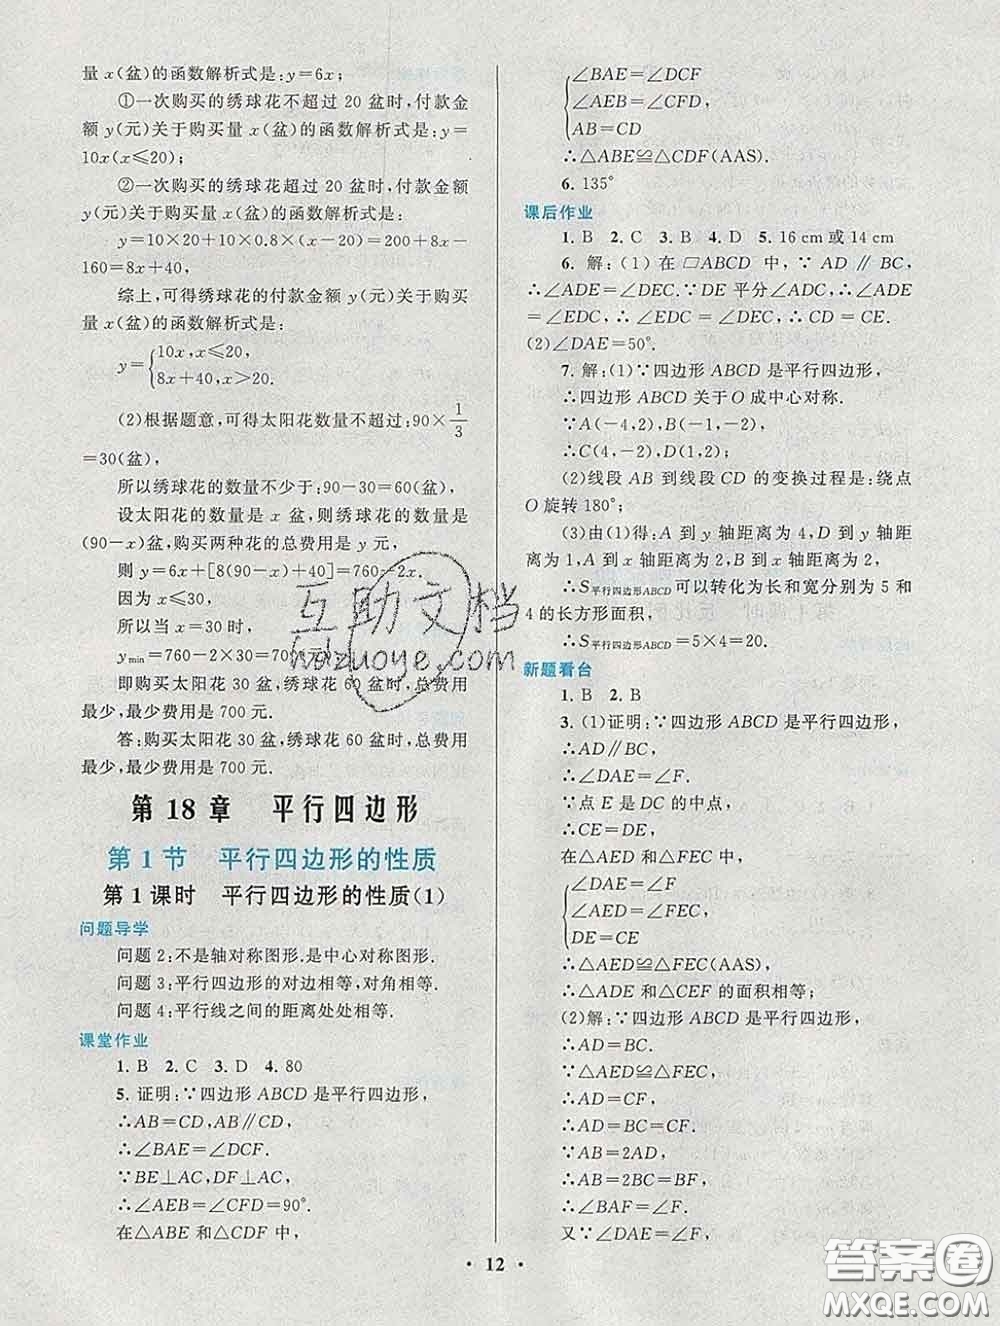 量 x(盆)的函数解析式是:y=6x;
①一次购买的绣球花不超过 20 盆时,付款金
额 y(元)关于购买量 x(盆)的函数解析式是:y=
10x(x≤20);
②一次购买的绣球花超过 20 盆时,付款金额
y(元)关于购买量 x(盆)的函数解析式是:
y=10×20+10×0.8×(x-20)=200+8x-
160=8x+40,
综上,可得绣球花的付款金额 y(元)关于购买
量 x(盆)的函数解析式是:
y={10x,x≤20,
8x+40,x>20.
(2)根据题意,可得太阳花数量不超过:90×1/3
=30(盆),
所以绣球花的数量不少于:90-30=60(盆),
设太阳花的数量是 x 盆,则绣球花的数量是
(90-x)盆,购买两种花的总费用是 y 元,
则 y=6x+[8(90-x)+40]=760-2x,
因为 x≤30,
所以当 x=30 时,
ymin=760-2×30=700(元),
即购买太阳花 30 盆,绣球花 60 盆时,总费用
最少,最少费用是 700 元.
答:购买太阳花 30 盆,绣球花 60 盆时,总费用
最少,最少费用是 700 元.
第 18 章 平行四边形
第 1 节 平行四边形的性质
第 1 课时 平行四边形的性质(1)
问题导学
问题 2:不是轴对称图形.是中心对称图形.
问题 3:平行四边形的对边相等,对角相等.
问题 4:平行线之间的距离处处相等.
课堂作业
1. B 2. C 3. D 4. 80
5. 证明:∵四边形 ABCD 是平行四边形,
∴AB=CD,AB∥CD,
∴∠BAE=∠DCF.
∵BE⊥AC,DF⊥AC,
∴∠AEB=∠CFD=90°.
在△ABE 和△CDF 中,
∠BAE=∠DCF
∠AEB=∠CFD,
AB=CD
∴△ABE≌△CDF(AAS).
6. 135°
课后作业
1. B 2. C 3. B 4. D 5. 16 cm 或 14 cm
6. 解:(1)在 □ABCD 中,∵ AD ∥ BC,
∴∠ADE=∠DEC.∵DE 平分∠ADC,∴∠ADE
=∠EDC,∴∠EDC = ∠DEC,∴ CD = CE.
(2)∠DAE=50°.
7. 解:(1)∵四边形 ABCD 是平行四边形,
∴四边形 ABCD 关于 O 成中心对称.
∵A(-4,2),B(-1,-2),
∴C(4,-2),D(1,2);
(2)线段 AB 到线段 CD 的变换过程是:绕点
O 旋转 180°;
(3)由(1)得:A 到 y 轴距离为 4,D 到 y 轴距
离为 1,A 到 x 轴距离为 2,B 到 x 轴距离为 2,
∴S平行四边形ABCD可以转化为长和宽分别为 5 和
4 的长方形面积,
∴S平行四边形ABCD=5×4=20.
新题看台
1. B 2. B
3. (1)证明:∵四边形 ABCD 是平行四边形,
∴AD∥BC,
∴∠DAE=∠F.
∵点 E 是 DC 的中点,
∴CE=DE,
在△AED 和△FEC 中,
∠DAE=∠F
∠AED=∠FEC,
DE=CE
∴△AED≌△FEC(AAS),
∴△ADE 和△CEF 的面积相等;
(2)解:∵四边形 ABCD 是平行四边形,
∴AD=BC.
∵△AED≌△FEC,
∴AD=CF,
∴AD=BC=CF.
∵AB=2AD,
∴AB=2BC=BF,
∴∠BAF=∠F.
又∵∠DAE=∠F,
• 12 •
互助文档
hdzuoye.com
答案圈
MXQE.COM